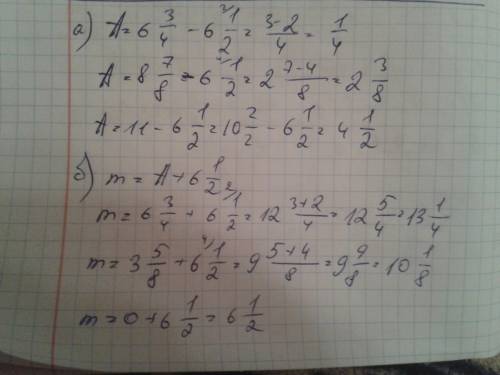 а) A = 6 3/4 - 6 1/2 = 3-2/4 = 1/4
A = 8 7/8 - 6 1/2 = 2 7-4/8 = 2 3/8
A = 11 - 6 1/2 = 10 2/2 - 6 1/2 = 4 1/2
б) m = A + 6 1/2
m = 6 3/4 + 6 1/2 = 12 3+2/4 = 12 5/4 = 13 1/4
m = 3 5/8 + 6 1/2 = 9 5+4/8 = 9 9/8 = 10 1/8
m = 0 + 6 1/2 = 6 1/2